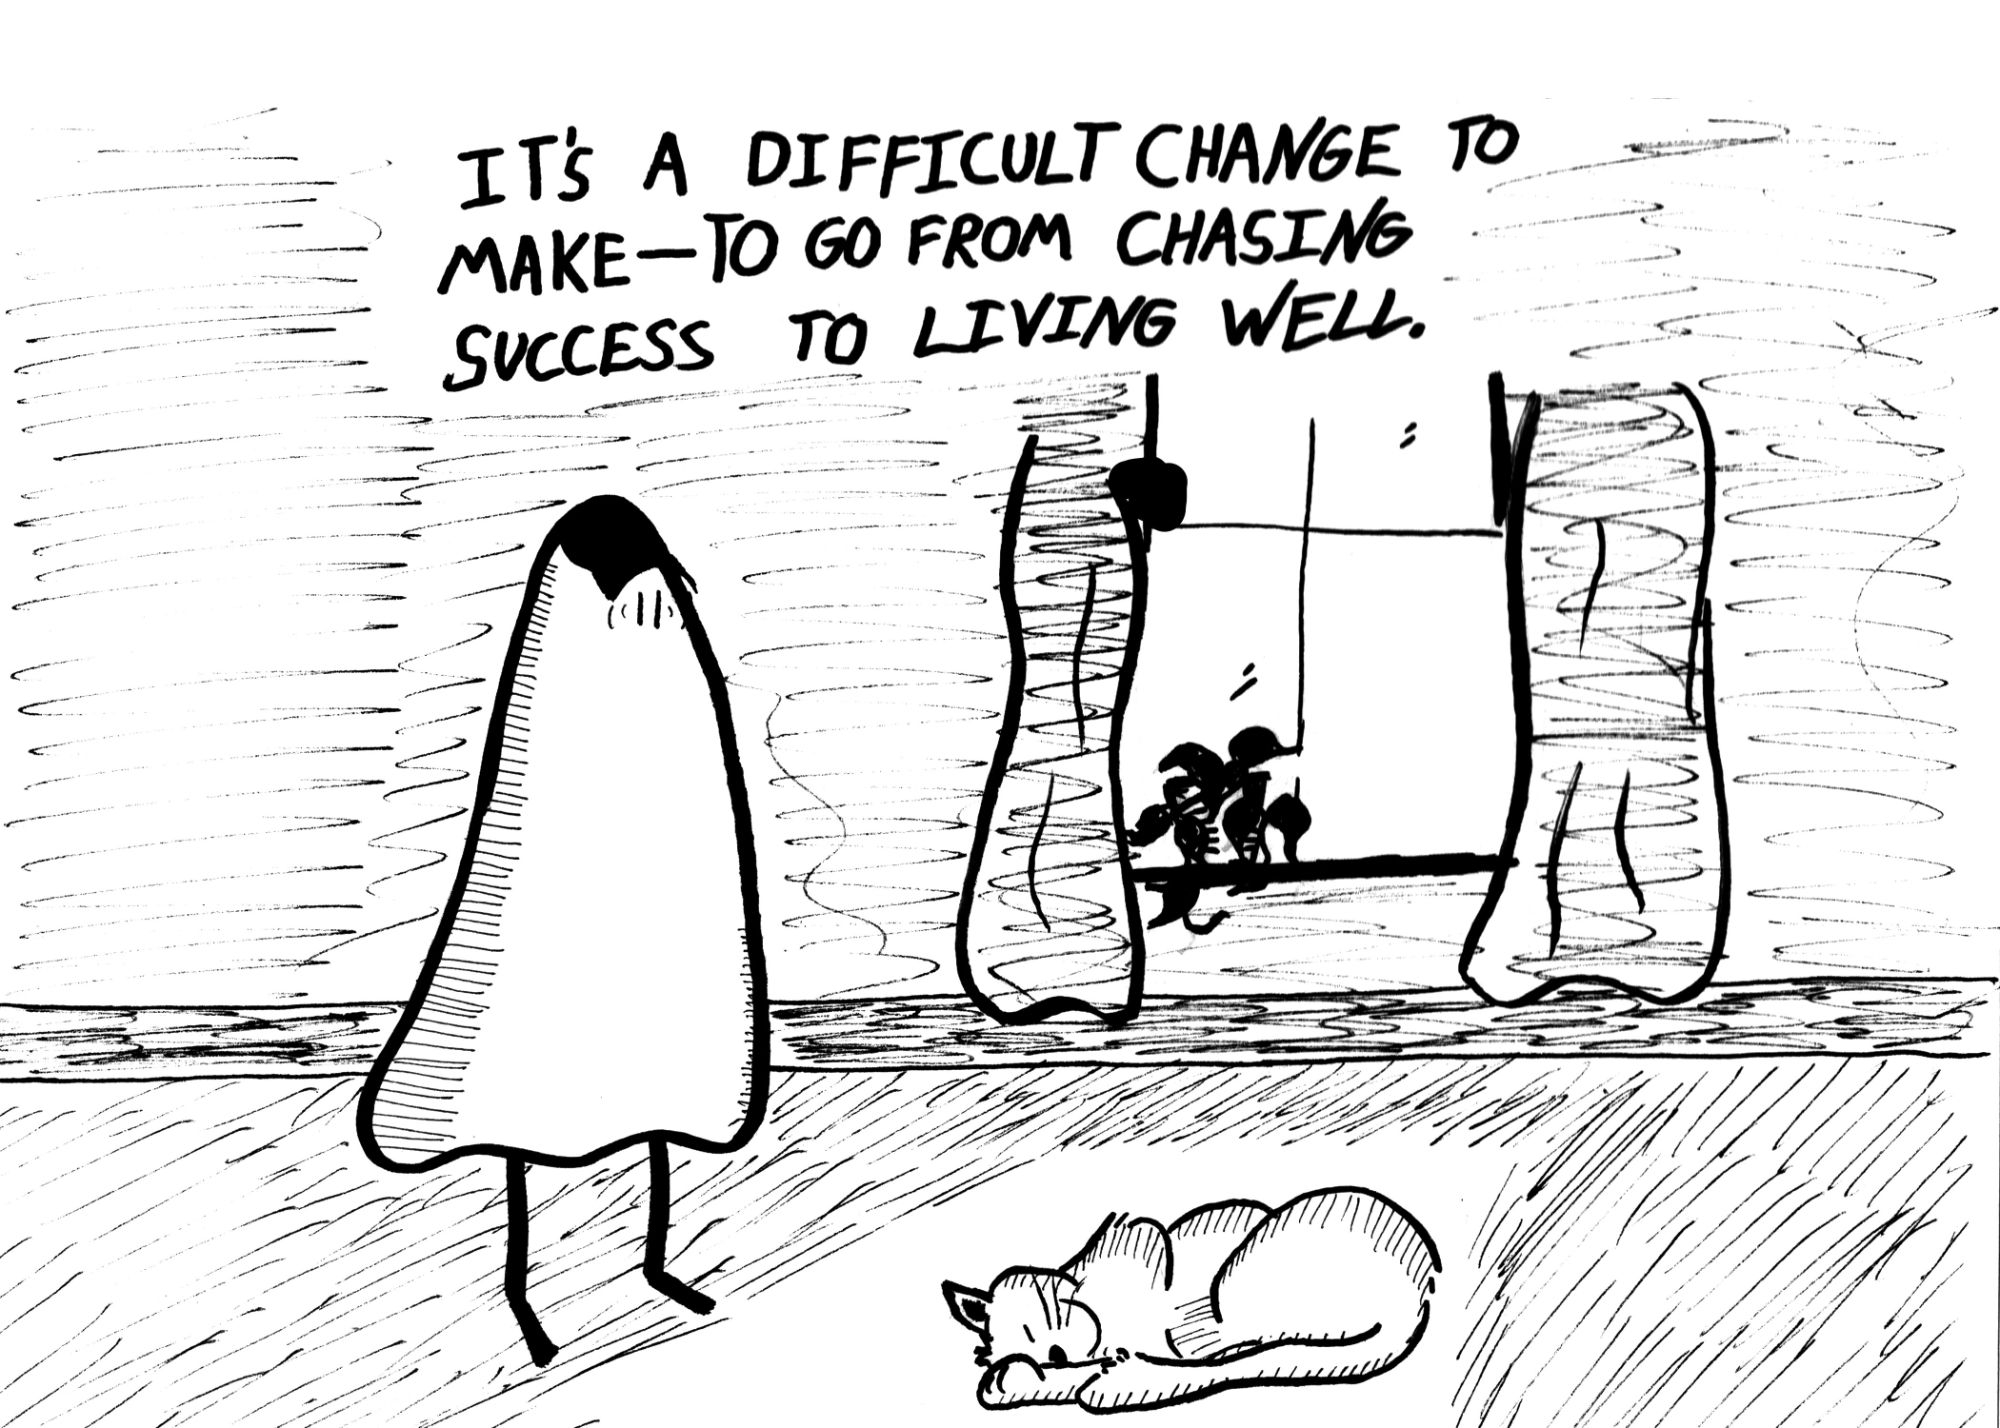 IT'S A DIFFICULT CHANGE TO
MAKE—TO GO FROM CHASING
SUCCESS TO LIVING WELL.